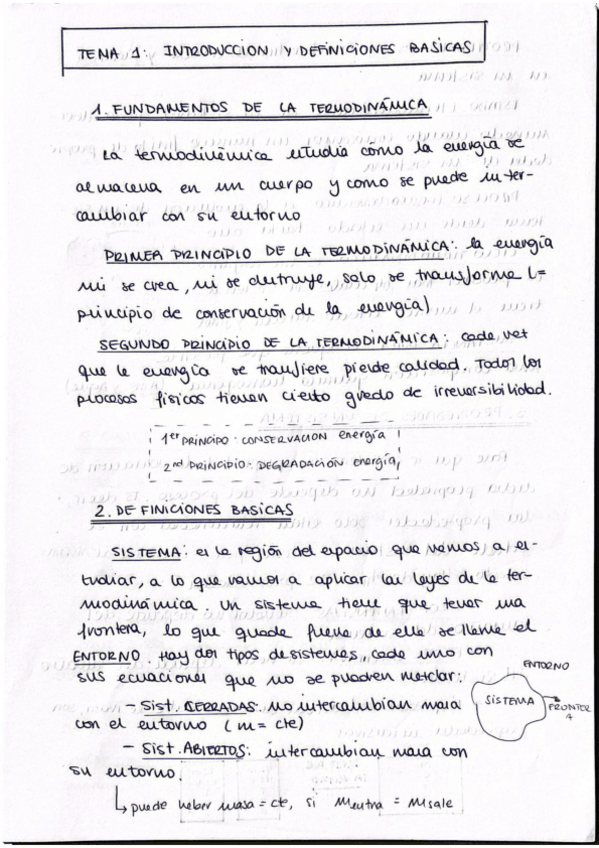 TEMA 1: INTRODUCCION Y DEFINICIONES BASICAS
1. FUNDAMENTOS DE LA TERMODINÁMICA
La termodinámica estudia cómo la energía se
almacena en un cuerpo y como se puede inter-
cambiar con su entorno
PRIMEA PRINCIPIO DE LA TERMODINÁMICA: la energía
ni se crea, ni se destruye, solo se transforma (=
principio de conservación de la energía)
SEGUNDO PRINCIPIO DE LA TERMODINÁMICA: cada vez
que la energía se transfiere pierde calidad. Todos los
procesos físicos tienen cierto grado de irreversibilidad.
1er PRINCIPO: CONSERVACION energía
2nd PRINCIPIO: DEGRADACIÓN energía
2. DEFINICIONES BASICAS
SISTEMA: es la región del espacio que vamos a es-
tudiar, a lo que vamos a aplicar las leyes de la ter-
modinámica. Un sistema tiene que tener una
frontera, lo que quede fuera de ella se llama el
ENTORNO Hay dos tipos de sistemas, cada uno con
sus ecuaciones que no se pueden mezclar:
- Sist. CERRADAS: no intercambian masa
con el entorno (m = cte)
- Sist. ABIERTOS: intercambian masa con
su entorno.
↳ puede haber masa = cte, si Mentra = Msale
ENTORNO
SISTEMA
FRONTER
A